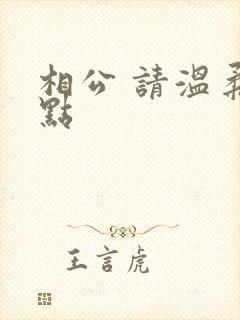 相公 請溫柔
點
王言虎